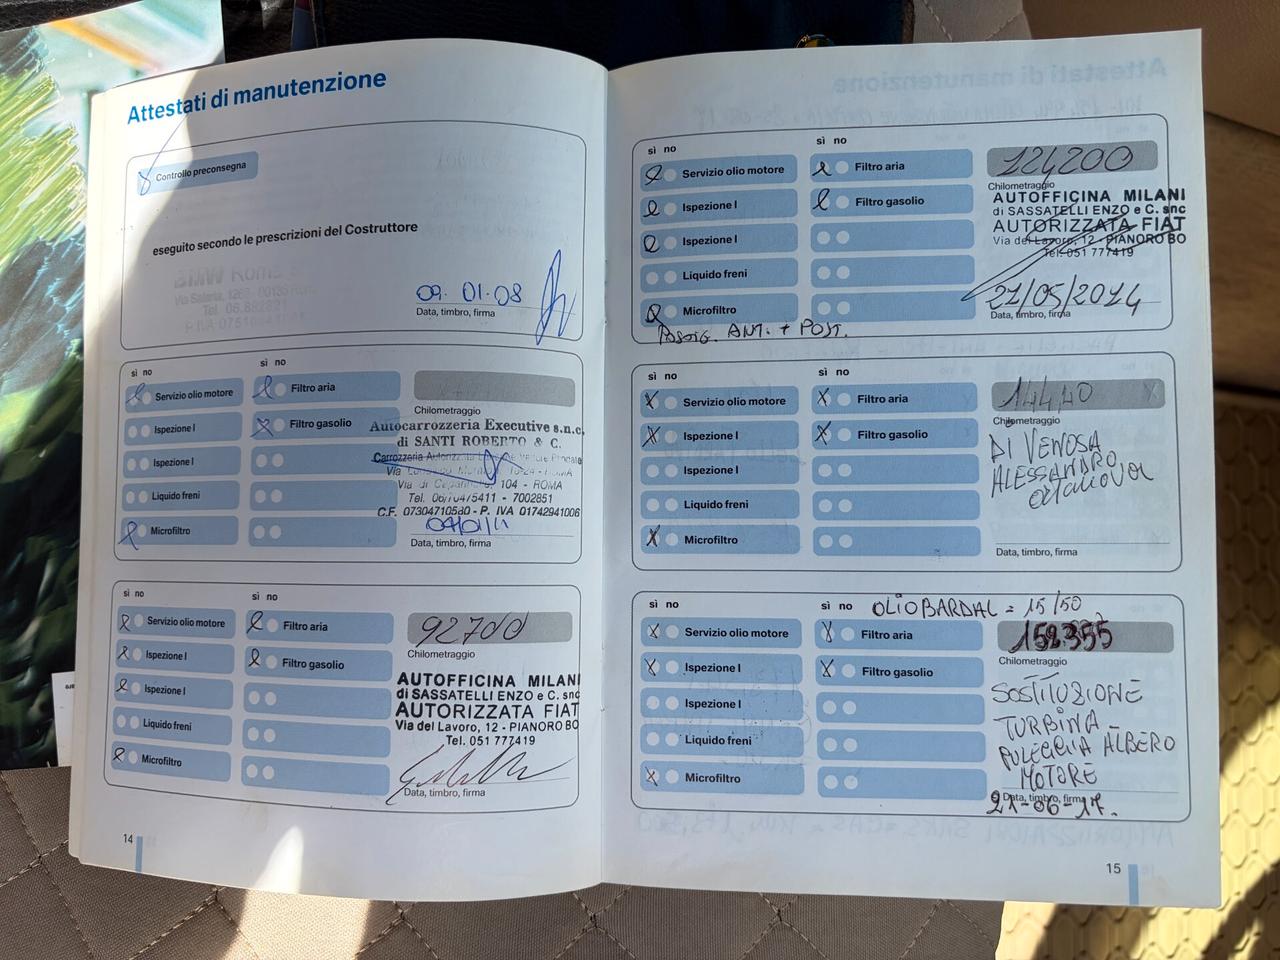 Attestati di manutenzione
Controllo preconsegna
eseguito secondo le prescrizioni del Costruttore
BMW Roma
Via Salaria, 1267 - 00138
09. 01. 08
Data, timbro, firma
sì no sì no
Servizio olio motore Filtro aria
Ispezione I Filtro gasolio
Ispezione I
Liquido freni
Microfiltro
Chilometraggio
Autocarrozzeria Executive s.n.c.
di SANTI ROBERTO & C.
104 - ROMA
Tel. 06/70475411 - 7002851
C.F. 07304710580 - P. IVA 01742941006
04/01/11
Data, timbro, firma
sì no sì no
Servizio olio motore Filtro aria
Ispezione I Filtro gasolio
Ispezione I
Liquido freni
Microfiltro
92700
Chilometraggio
AUTOFFICINA MILANI
di SASSATELLI ENZO e C. snc
AUTORIZZATA FIAT
Via del Lavoro, 12 - PIANORO BO
Tel. 051 777419
Data, timbro, firma
14
sì no sì no
Servizio olio motore Filtro aria
Ispezione I Filtro gasolio
Ispezione I
Liquido freni
Microfiltro
ANT. + POST.
124200
Chilometraggio
AUTOFFICINA MILANI
di SASSATELLI ENZO e C. snc
AUTORIZZATA FIAT
Via del Lavoro, 12 - PIANORO BO
Tel. 051 777419
21/05/2014
Data, timbro, firma
sì no sì no
Servizio olio motore Filtro aria
Ispezione I Filtro gasolio
Ispezione I
Liquido freni
Microfiltro
Chilometraggio
DI VENOSA
ALESSANDRO
Data, timbro, firma
sì no sì no OLIO BARDAL = 15/50
Servizio olio motore Filtro aria
Ispezione I Filtro gasolio
Ispezione I
Liquido freni
Microfiltro
152.355
Chilometraggio
SOSTITUZIONE
TURBINA -
PULEGGIA ALBERO
MOTORE
Data, timbro, firma
21-06-17.
15